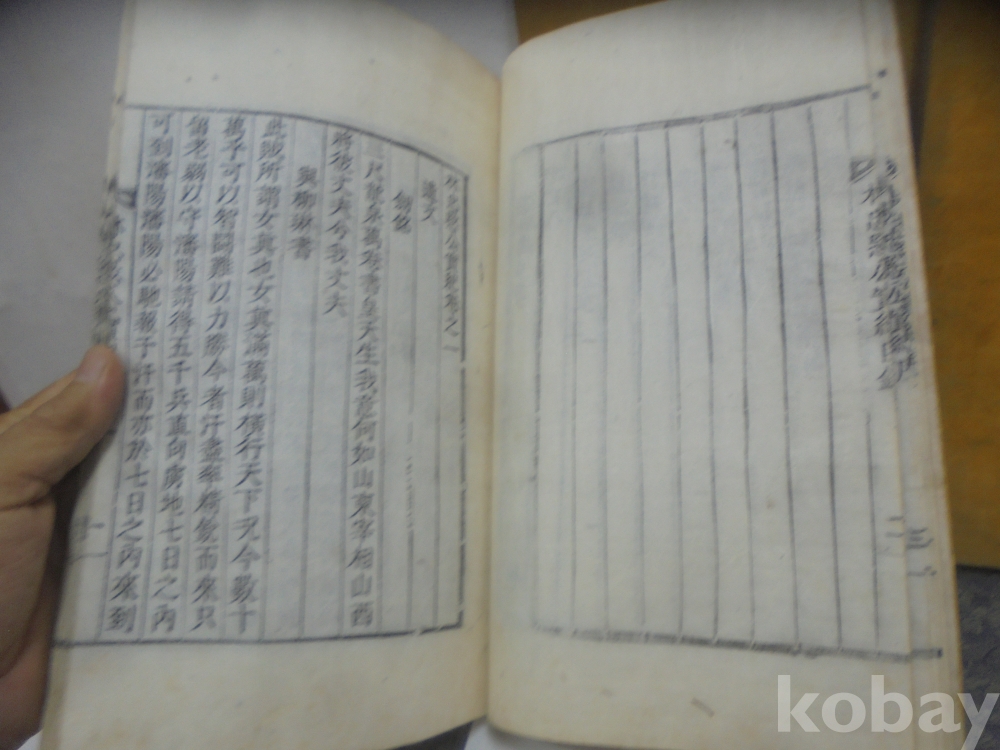 林忠愍公實記卷之一
遺文
劍銘
三尺龍泉萬卷書皇天生我意何如山東宰相山西
將彼丈夫兮我丈夫
與柳琳書
此賊所謂女眞也女眞滿萬則橫行天下况今數十
萬乎可以智鬪難以力勝今者汗盡率精銳而來只
留老弱以守瀋陽請得五千兵直向虜地七日之內
可到瀋陽瀋陽必馳報于汗而亦於七日之內來到
二
三
kobay